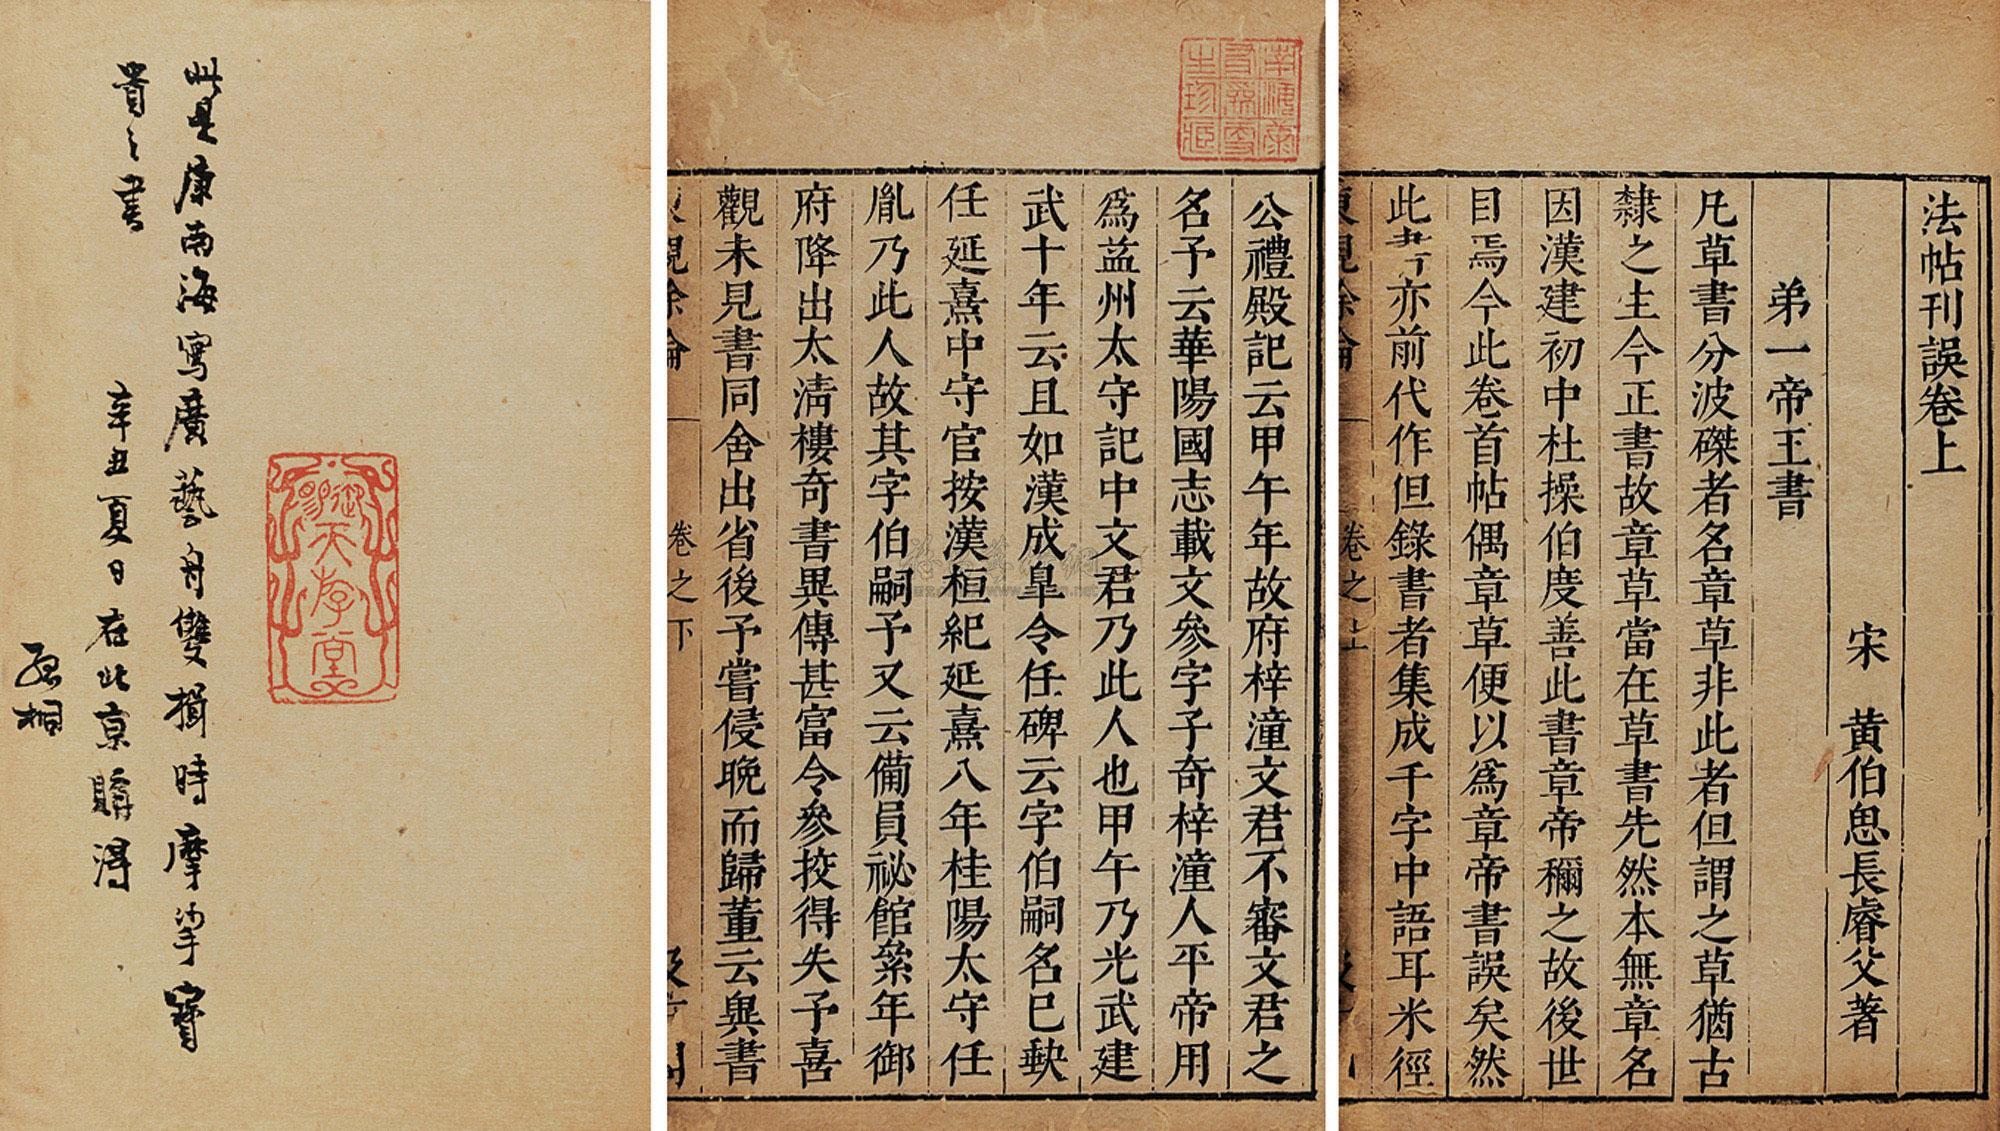 法帖刊誤卷上
宋 黄伯思長睿父著
弟一帝王書
凡草書分波磔者名章草非此者但謂之草猶古
隸之生今正書故章草當在草書先然本無章名
因漢建初中杜操伯度善此書章帝稱之故後世
目焉今此卷首帖偶章草便以爲章帝書誤矣然
此書亦前代作但錄書者集成千字中語耳米徑
卷之上
公禮殿記云甲午年故府梓潼文君不審文君之
名予云華陽國志載文參字子奇梓潼人平帝用
爲益州太守記中文君乃此人也甲午乃光武建
武十年云且如漢成臯令任碑云字伯嗣名巳缺
任延熹中守官按漢桓紀延熹八年桂陽太守任
胤乃此人故其字伯嗣予又云備員祕館絫年御
府降出太清樓奇書異傳甚富令參挍得失予喜
觀未見書同舍出省後予嘗侵晚而歸董云與書
卷之下
此是康南海寫廣藝舟雙楫時摩挲寶
貴之書
辛丑夏日在北京購得